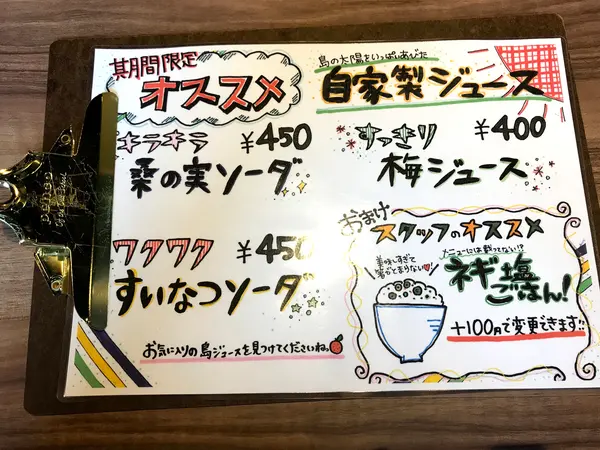 期間限定
オススメ
島の太陽をいっぱいあびた
自家製ジュース
キラキラ ¥450
桑の実ソーダ
すっきり ¥400
梅ジュース
ワクワク ¥450
すいなつソーダ
お気に入りの島ジュースを見つけてくださいね。
おまけ
スタッフのオススメ
美味しすぎて
箸がとまらない
メニューには載ってない!?
ネギ塩
ごはん!
+100円で変更できます!!